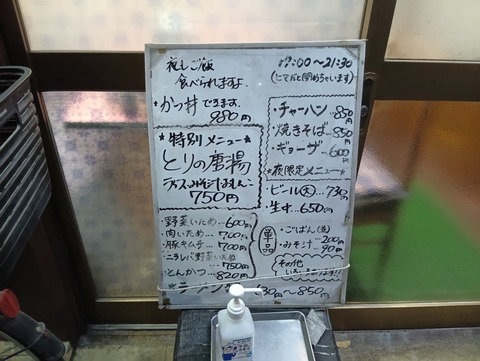 夜もご飯
食べられますよ
かつ丼できます。
990円
★特別メニュー★
とりの唐揚
ライス・みそ汁・おしんこ
750円
・野菜いため…600円
・肉いため…700円
・豚キムチ…700円
・ニラレバ野菜いため
750円
・とんかつ…820円
~21:30
・チャーハン…850円
・焼きそば…850円
・ギョーザ…600円
☆夜限定メニュー☆
・ビール(大)…730円
・生中…650円
単品
・ごはん
200円
・みそ汁
90円
その他
ラーメン
~850円